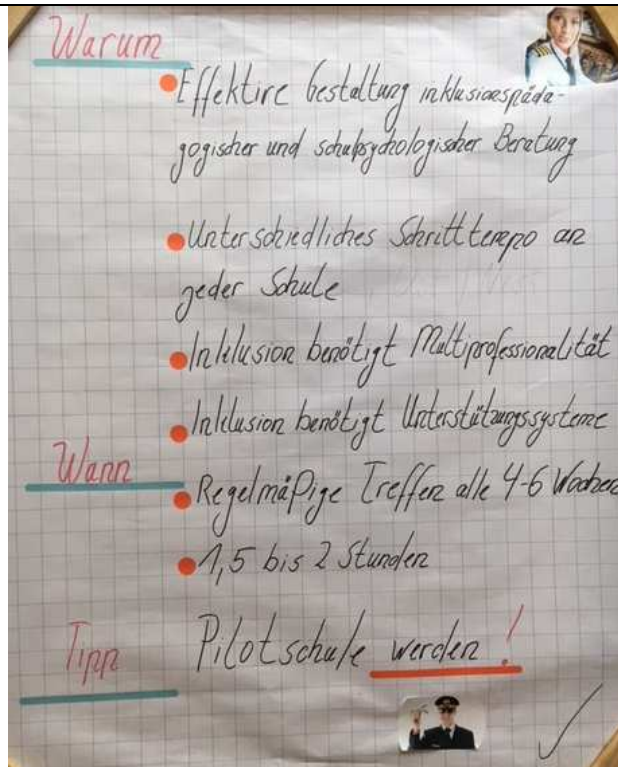 Warum
Effektive Gestaltung inklusionspäda-
gogischer und schulpsychologischer Beratung
Unterschiedliches Schritttempo an
jeder Schule
Inklusion benötigt Multiprofessionalität
Inklusion benötigt Unterstützungssysteme
Wann
Regelmäßige Treffen alle 4-6 Wochen
1,5 bis 2 Stunden
Tipp Pilotschule werden!